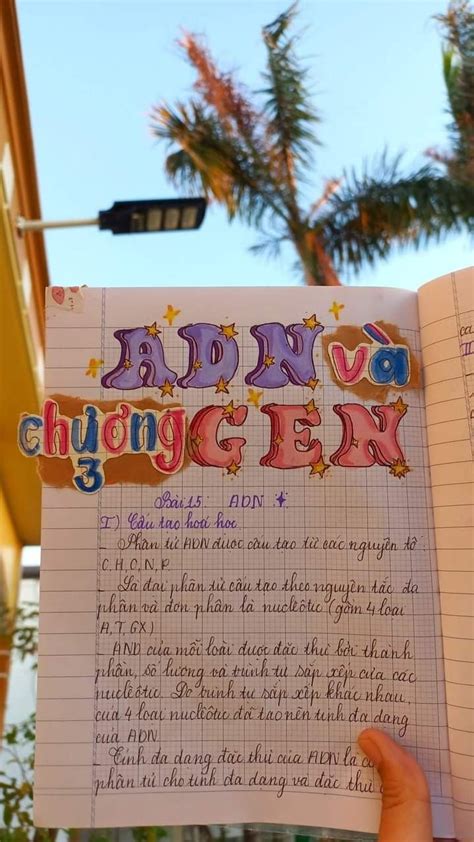 ADN và
chương GEN
3
Bài 15. ADN
I) Cấu tạo hoá học
_ Phân tử ADN được cấu tạo từ các nguyên tố:
C, H, O, N, P.
_ Là đại phân tử cấu tạo theo nguyên tắc đa
phân và đơn phân là nucleôtic (gồm 4 loại
A, T, G X)
_ AND của mỗi loài được đặc thù bởi thành
phần, số lượng và trình tự sắp xếp của các
nucleôtic. Do trình tự sắp xếp khác nhau,
của 4 loại nucleôtic đã tạo nên tính đa dạng
của ADN.
_ Tính đa dạng đặc thù của ADN là
phân tử cho tính đa dạng và đặc thù